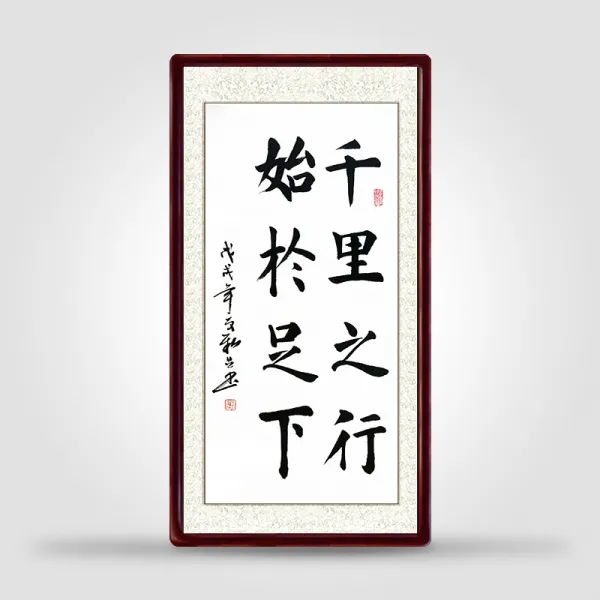 千里之行
始於足下
戊戌年